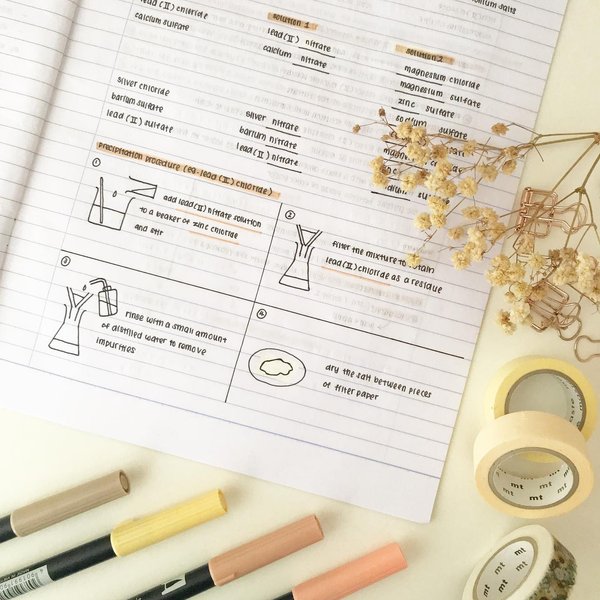 lead (II) chloride
calcium sulfate
solution 1
lead (II) nitrate
calcium nitrate
solution 2
magnesium chloride
magnesium sulfate
zinc sulfate
sodium sulfate
silver chloride
barium sulfate
lead (II) sulfate
silver nitrate
barium nitrate
lead (II) nitrate
sulfate
precipitation procedure (eg. lead (II) chloride)
1
add lead (II) nitrate solution
to a beaker of zinc chloride
and stir
2
filter the mixture to obtain
lead (II) chloride as a residue
3
rinse with a small amount
of distilled water to remove
impurities
4
dry the salt between pieces
of filter paper
mt
mt
mt
mt
mt
mt